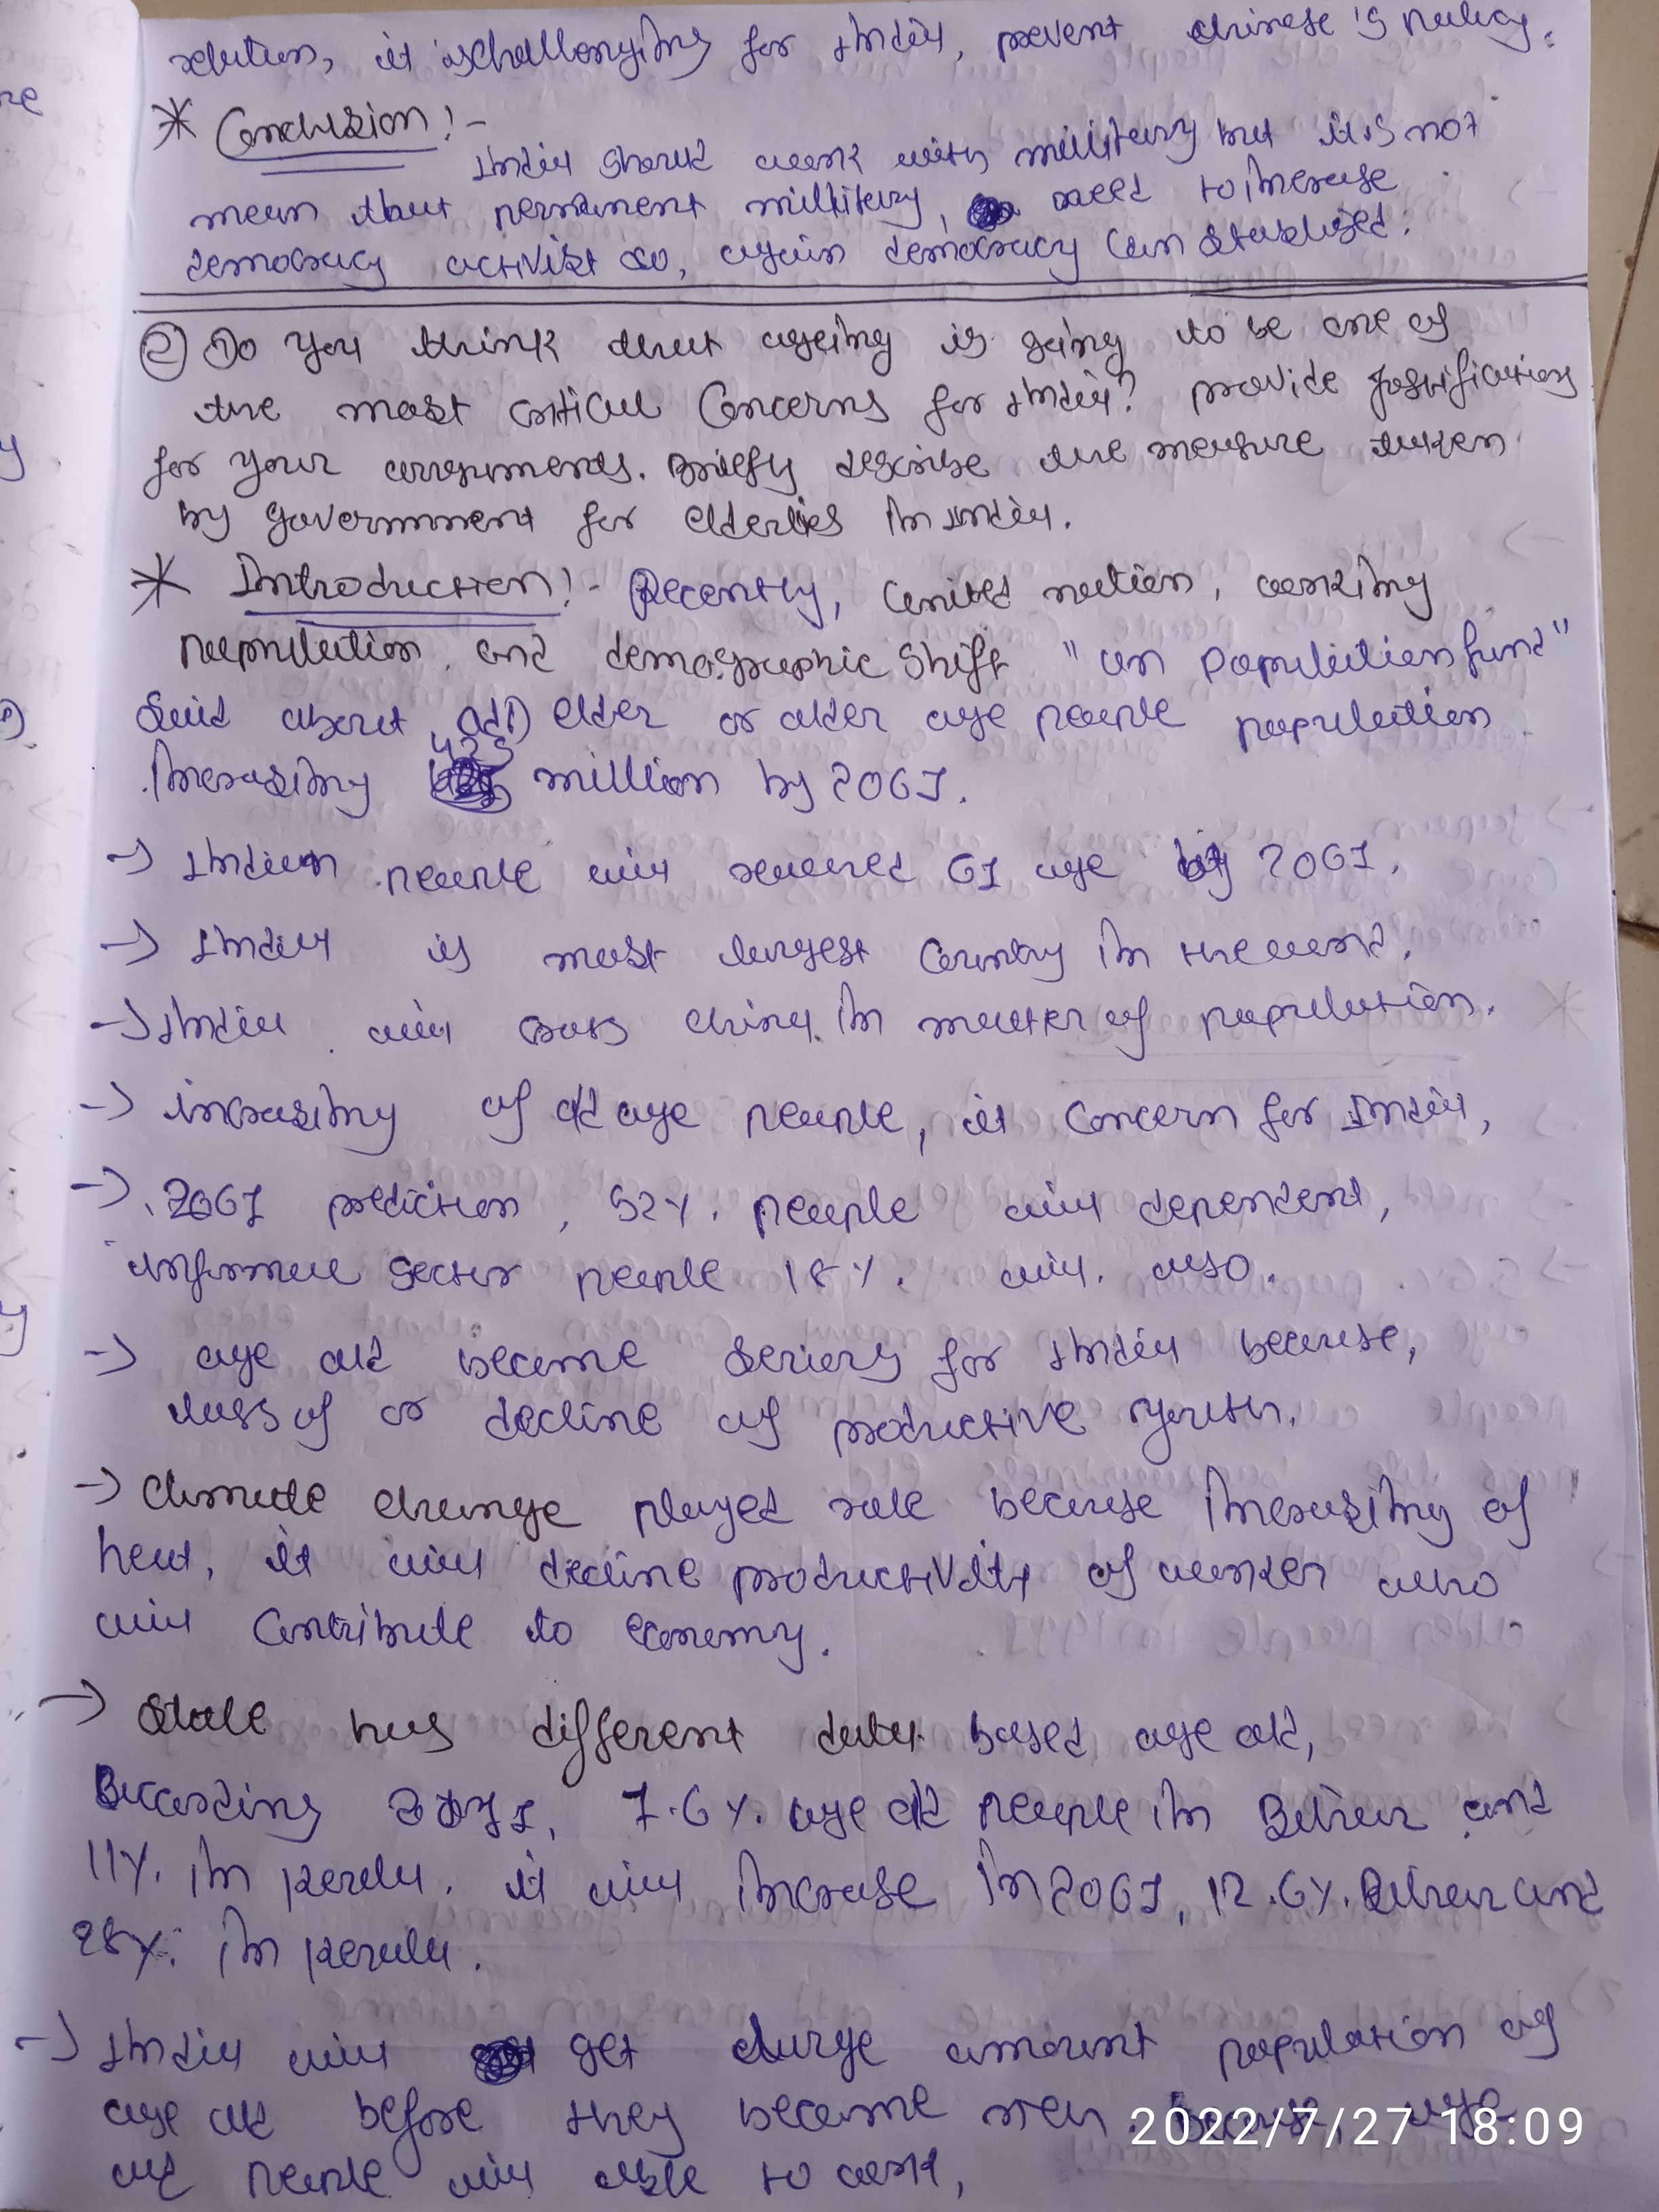 relation, it is challenging for India, prevent chinese's policy.
* Conclusion :-
India should work with millitary but it is not
mean that permanent millitary, need to increase
democracy activist so, again democracy can stablised.
② Do you think that ageing is going to be one of
the most critical concerns for India? provide justification
for your arguments. Briefly describe the measure taken
by government for elderlies in India.
* Introduction :- Recently, united nation, working
population and demographic shift "un population fund"
said about old elder or older age people population
increasing 425 million by 2061.
→ Indian people will reached 61 age by 2061.
→ India is most largest country in the world.
→ India will cross china in matter of population.
→ increasing of old age people, it concern for India,
→ 2061 prediction, 52%. people will dependent,
informal sector people 18%. will also.
→ age old became serious for India because,
loss of or decline of productive youth.
→ Climate change played role because increasing of
heat, it will decline productivity of worker who
will contribute to economy.
→ State has different data based age old,
According 7.6%. age old people in Bihar and
11%. in kerala. it will increase in 2061, 12.6%. Bihar and
28%. in kerala.
→ India will get large amount population of
age old before they become age
old people will able to work,
2022/7/27 18:09